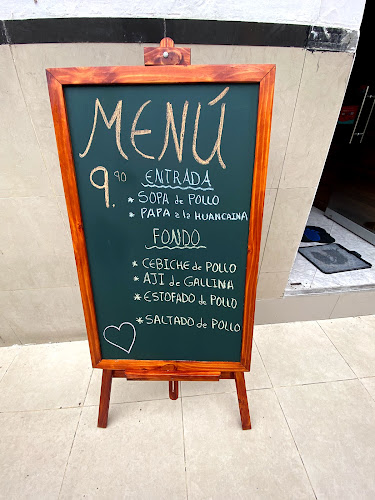 MENÚ
9.90
ENTRADA
* SOPA de POLLO
* PAPA a la HUANCAINA
FONDO
* CEBICHE de POLLO
* AJI de GALLINA
* ESTOFADO de POLLO
* SALTADO de POLLO